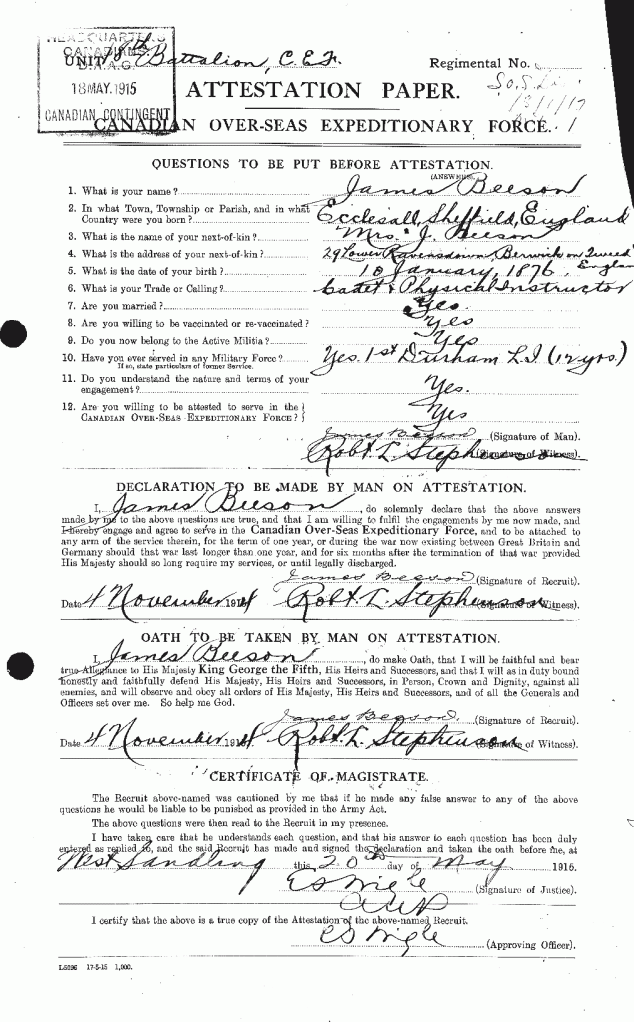 HEADQUARTERS
CANADIANS
D.A.A.G.
18 MAY. 1915
CANADIAN CONTINGENT
UNIT 18th Battalion, C.E.F.
Regimental No.
ATTESTATION PAPER.
13/1/17
CANADIAN OVER-SEAS EXPEDITIONARY FORCE.
QUESTIONS TO BE PUT BEFORE ATTESTATION.
(ANSWERS)
1. What is your name? James Beeson
2. In what Town, Township or Parish, and in what
Country were you born? Ecclesall, Sheffield, England
3. What is the name of your next-of-kin? Mrs. J. Beeson
4. What is the address of your next-of-kin? 29 Lower Ravensdown, Berwick on Tweed England
5. What is the date of your birth? 18 January, 1876
6. What is your Trade or Calling? Cadet & Physical Instructor
7. Are you married? Yes.
8. Are you willing to be vaccinated or re-vaccinated? Yes
9. Do you now belong to the Active Militia? Yes
10. Have you ever served in any Military Force? Yes. 1st Durham L.I (12 yrs.)
If so, state particulars of former Service.
11. Do you understand the nature and terms of your
engagement? Yes.
12. Are you willing to be attested to serve in the
CANADIAN OVER-SEAS EXPEDITIONARY FORCE? Yes
James Beeson (Signature of Man).
Robt. L. Stephenson (Signature of Witness).
DECLARATION TO BE MADE BY MAN ON ATTESTATION.
I, James Beeson, do solemnly declare that the above answers
made by me to the above questions are true, and that I am willing to fulfil the engagements by me now made, and
I hereby engage and agree to serve in the Canadian Over-Seas Expeditionary Force, and to be attached to
any arm of the service therein, for the term of one year, or during the war now existing between Great Britain and
Germany should that war last longer than one year, and for six months after the termination of that war provided
His Majesty should so long require my services, or until legally discharged.
James Beeson (Signature of Recruit).
Date 4 November 1914 Robt. L. Stephenson (Signature of Witness).
OATH TO BE TAKEN BY MAN ON ATTESTATION.
I, James Beeson, do make Oath, that I will be faithful and bear
true Allegiance to His Majesty King George the Fifth, His Heirs and Successors, and that I will as in duty bound
honestly and faithfully defend His Majesty, His Heirs and Successors, in Person, Crown and Dignity, against all
enemies, and will observe and obey all orders of His Majesty, His Heirs and Successors, and of all the Generals and
Officers set over me. So help me God.
James Beeson. (Signature of Recruit).
Date 4 November 1914 Robt. L. Stephenson (Signature of Witness).
CERTIFICATE OF MAGISTRATE.
The Recruit above-named was cautioned by me that if he made any false answer to any of the above
questions he would be liable to be punished as provided in the Army Act.
The above questions were then read to the Recruit in my presence.
I have taken care that he understands each question, and that his answer to each question has been duly
entered as replied to, and the said Recruit has made and signed the declaration and taken the oath before me, at
West Sandling this 20th day of May 1915.
(Signature of Justice).
I certify that the above is a true copy of the Attestation of the above-named Recruit.
(Approving Officer).
L.5096 17-5-15 1,000.